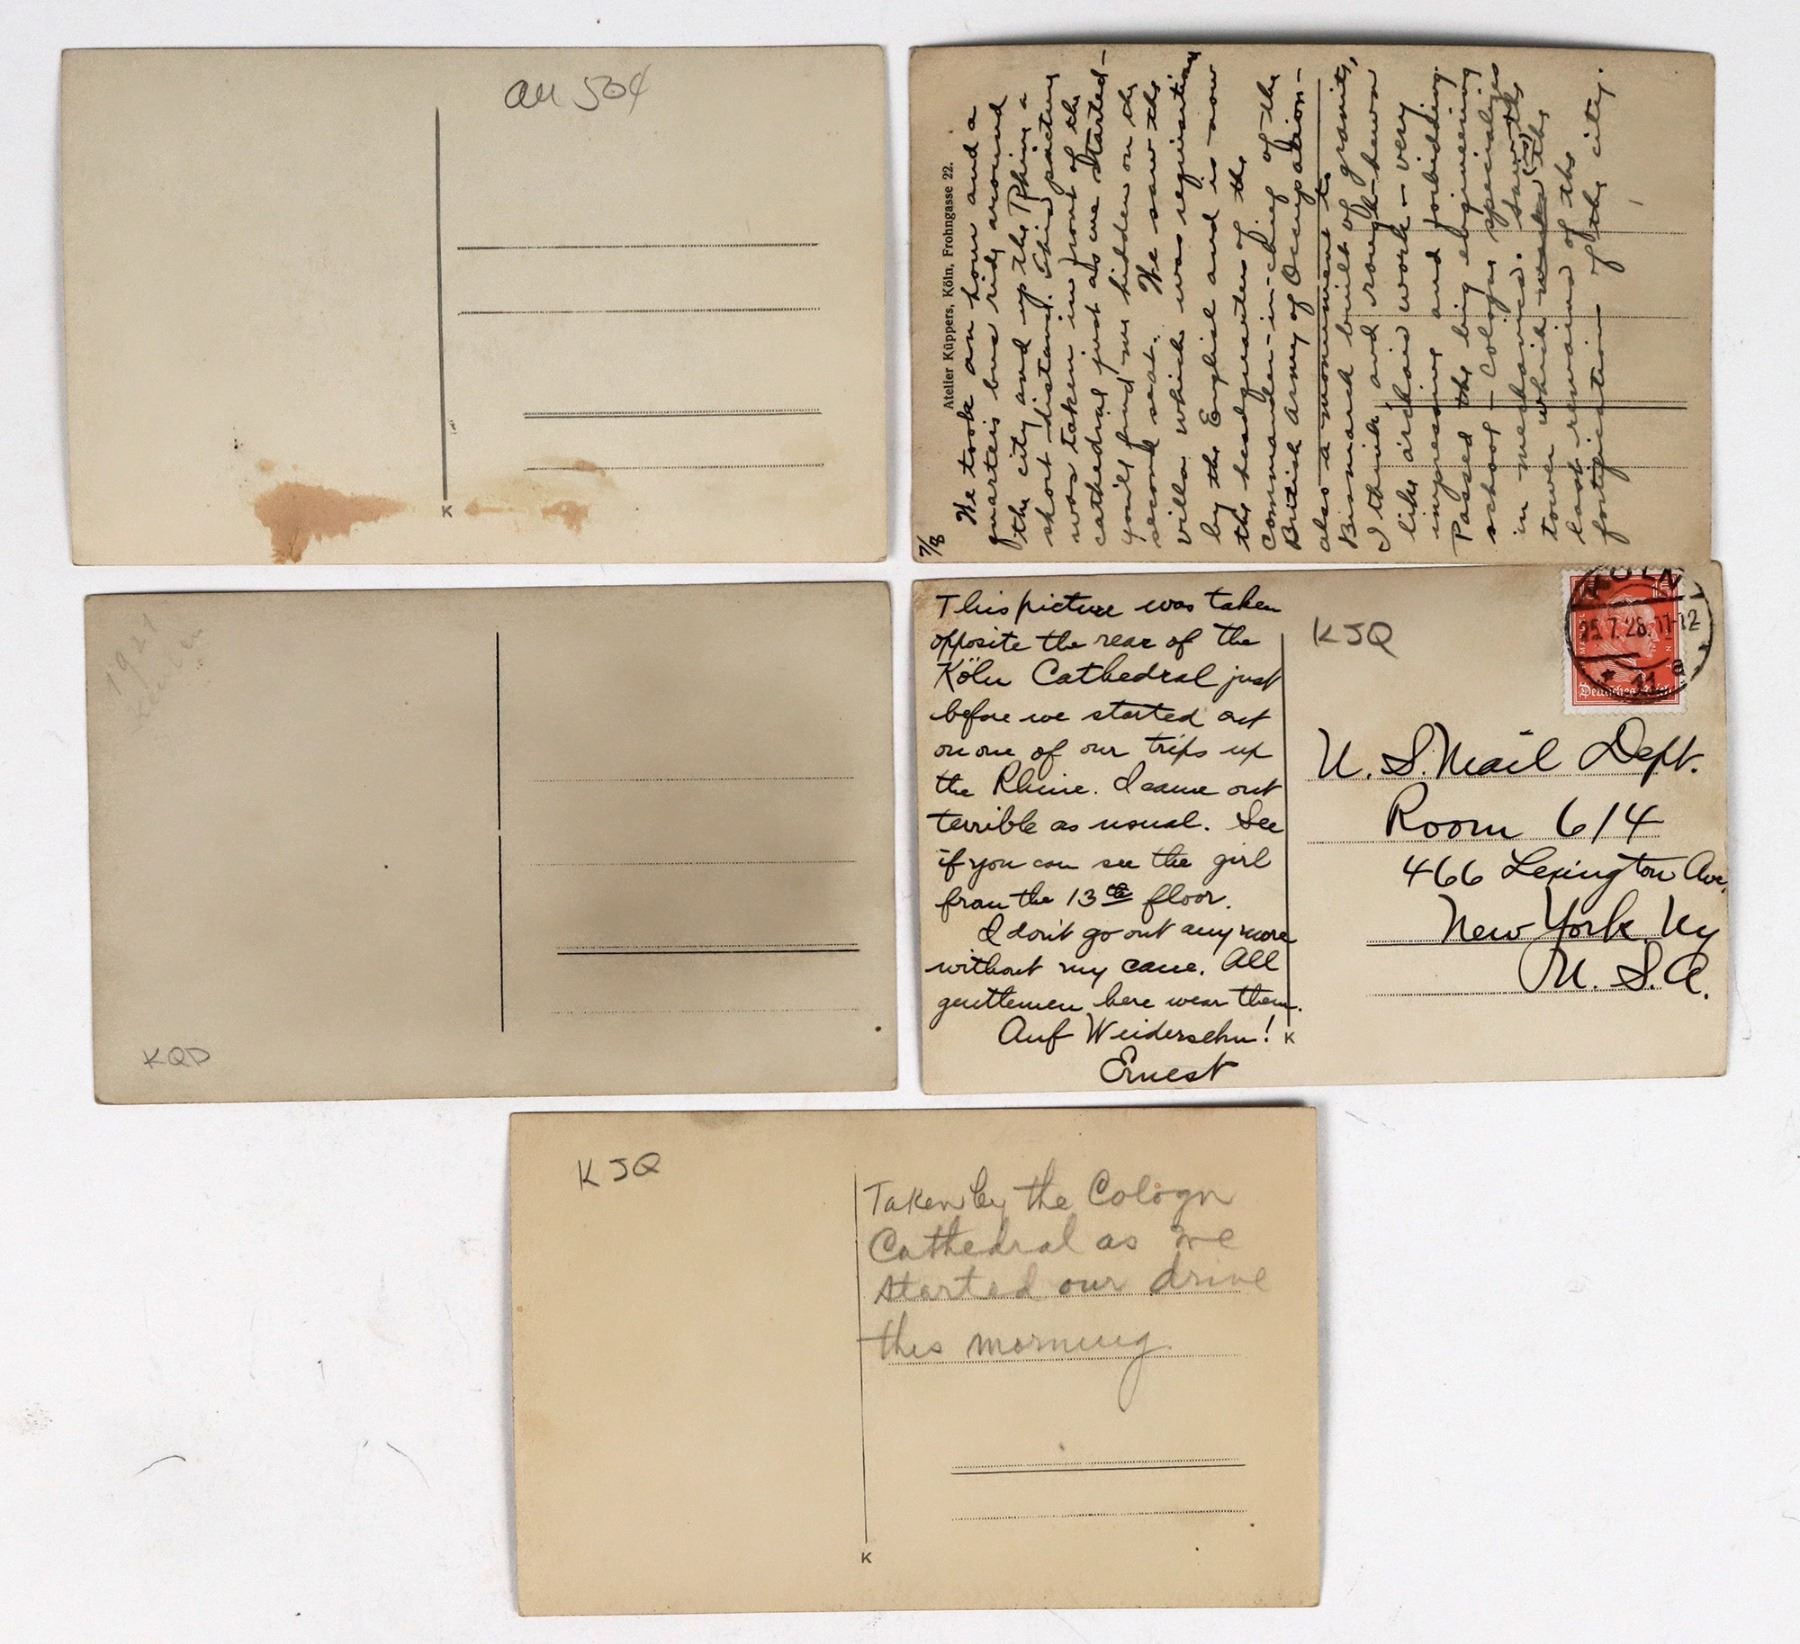 all 504
K
Atelier Küppers, Köln, Frohngasse 22.
7/8
We took an hour and a
quarter's bus ride around
the city and up the Rhine a
short distance. This picture
was taken in front of the
cathedral just as we started –
you'll find me hidden on the
second seat. We saw the
villa which was requisitioned
by the English and is now
the headquarters of the
Commander-in-chief of the
British Army of Occupation –
also a monument to
Bismarck built of granite,
I think and rough-hewn
like archaic work – very
impressive and forbidding.
Passed the big engineering
school – Cologne specializes
in mechanics. Saw the
tower which (is) the
last remains of the
fortifications of the city.
1921
KQD
This picture was taken
opposite the rear of the
Köln Cathedral just
before we started out
on one of our trips up
the Rhine. I came out
terrible as usual. See
if you can see the girl
from the 13th floor.
I don't go out any more
without my cane. All
gentlemen here wear them.
Auf Weidersehn!
Ernest
K
KJQ
KÖLN
25.7.28.11-12
* 11 a
Deutsches Reich
U. S. Mail Dept.
Room 614
466 Lexington Ave.
New York Ny
U. S. A.
KJQ
Taken by the Cologn
Cathedral as we
started our drive
this morning.
K